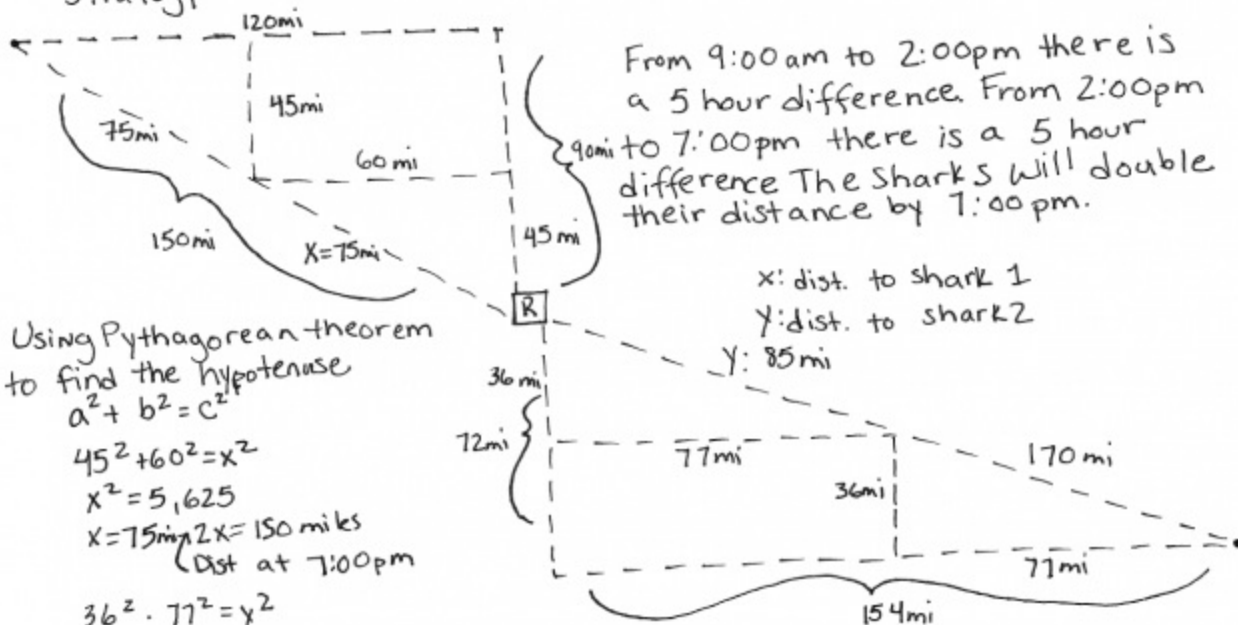 Strategy
120mi
45mi
75mi
60mi
90mi
150mi
X=75mi
45mi
R
From 9:00am to 2:00pm there is
a 5 hour difference. From 2:00pm
to 7:00pm there is a 5 hour
difference The Sharks will double
their distance by 7:00pm.
x: dist. to shark 1
Y: dist. to shark 2
Y: 85mi
Using Pythagorean theorem
to find the hypotenuse
a² + b² = c²
45² + 60² = x²
x² = 5,625
x=75mi 2x= 150 miles
Dist at 7:00pm
36² · 77² = y²
36mi
72mi
77mi
170mi
36mi
77mi
154mi